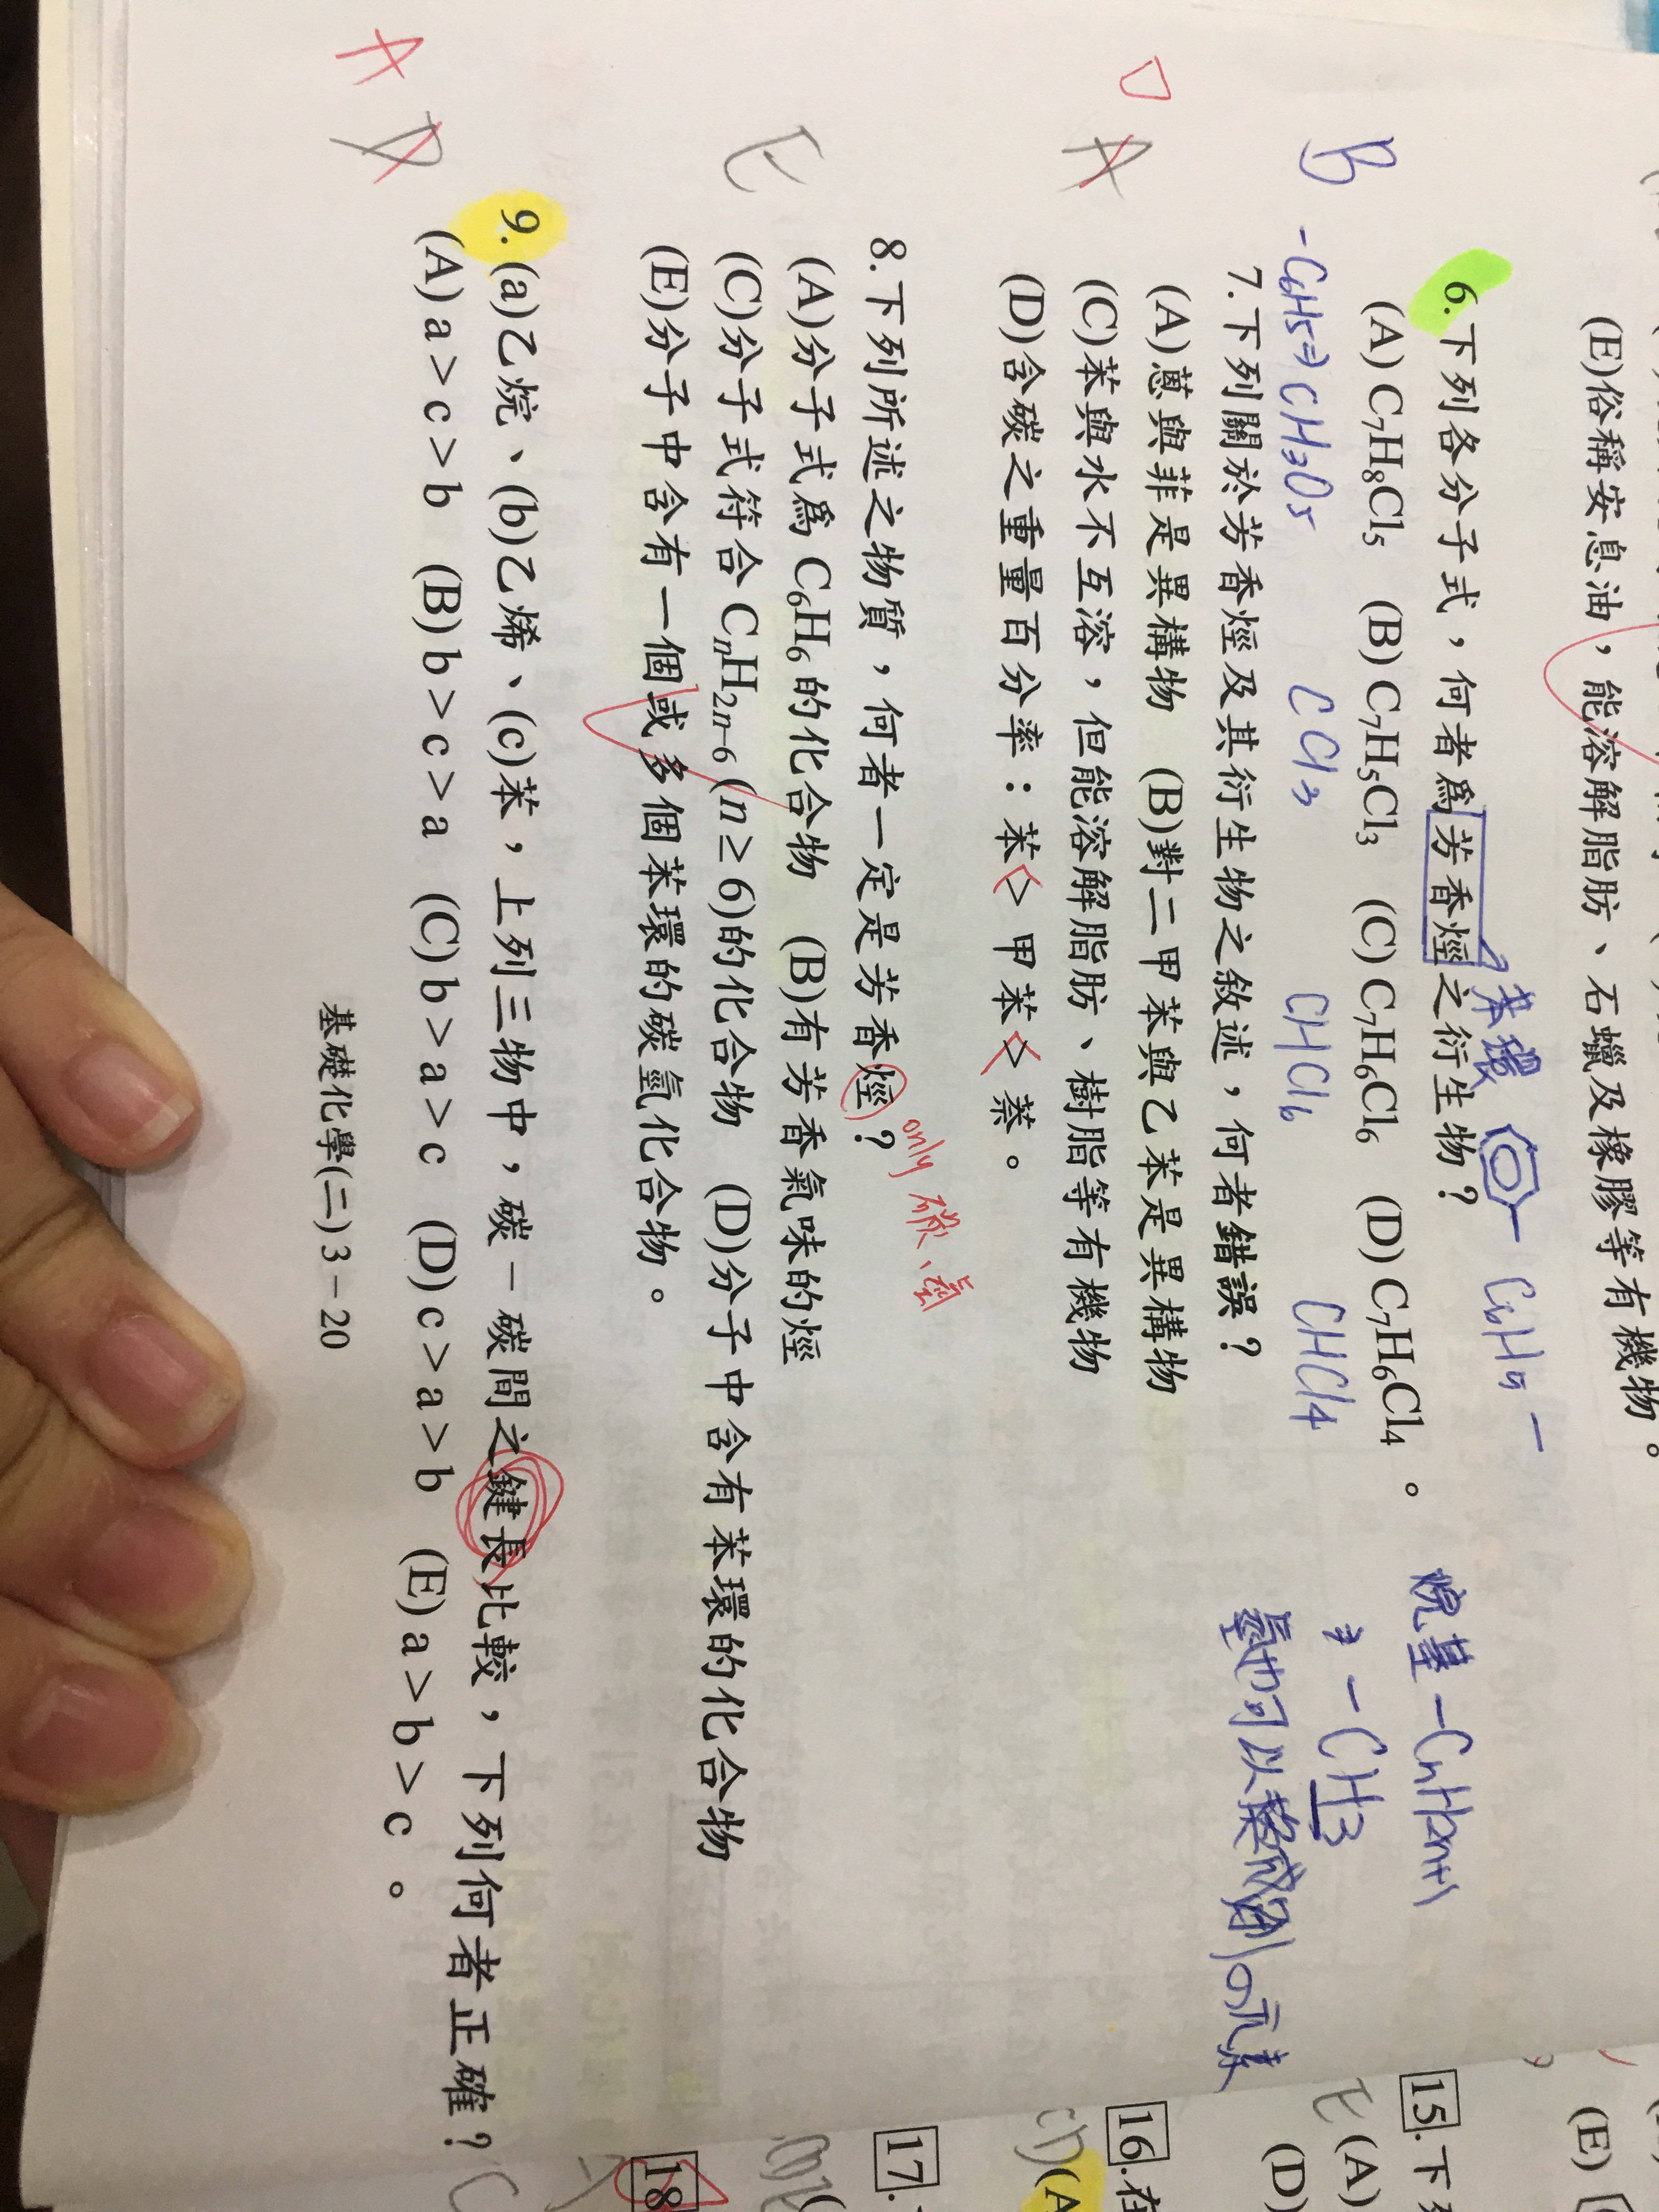 (E)俗稱安息油，能溶解脂肪、石蠟及橡膠等有機物。
苯環 C6H5－
6.下列各分子式，何者為芳香烴之衍生物？
(A) C₇H₈Cl₅ (B) C₇H₅Cl₃ (C) C₇H₆Cl₆ (D) C₇H₆Cl₄ 。
烷基－CnH2n+1
B
-C6H5⇒CH3Cl5 CCl3 CHCl6 CHCl4
⇒ －CH3
氫也可以換成別的元素
7.下列關於芳香烴及其衍生物之敘述，何者錯誤？
D A
(A)蒽與菲是異構物 (B)對二甲苯與乙苯是異構物
(C)苯與水不互溶，但能溶解脂肪、樹脂等有機物
(D)含碳之重量百分率：苯＞甲苯＞萘。
only 碳、氫
8.下列所述之物質，何者一定是芳香烴？
E
(A)分子式為 C₆H₆ 的化合物 (B)有芳香氣味的烴
(C)分子式符合 CₙH₂ₙ₋₆ (n ≥ 6)的化合物 (D)分子中含有苯環的化合物
(E)分子中含有一個或多個苯環的碳氫化合物。
A D
9.(a)乙烷、(b)乙烯、(c)苯，上列三物中，碳－碳間之鍵長比較，下列何者正確？
(A) a > c > b (B) b > c > a (C) b > a > c (D) c > a > b (E) a > b > c 。
基礎化學(二) 3－20
(E)
15.下
E (A)
(D)
16.在
(A
17.
18